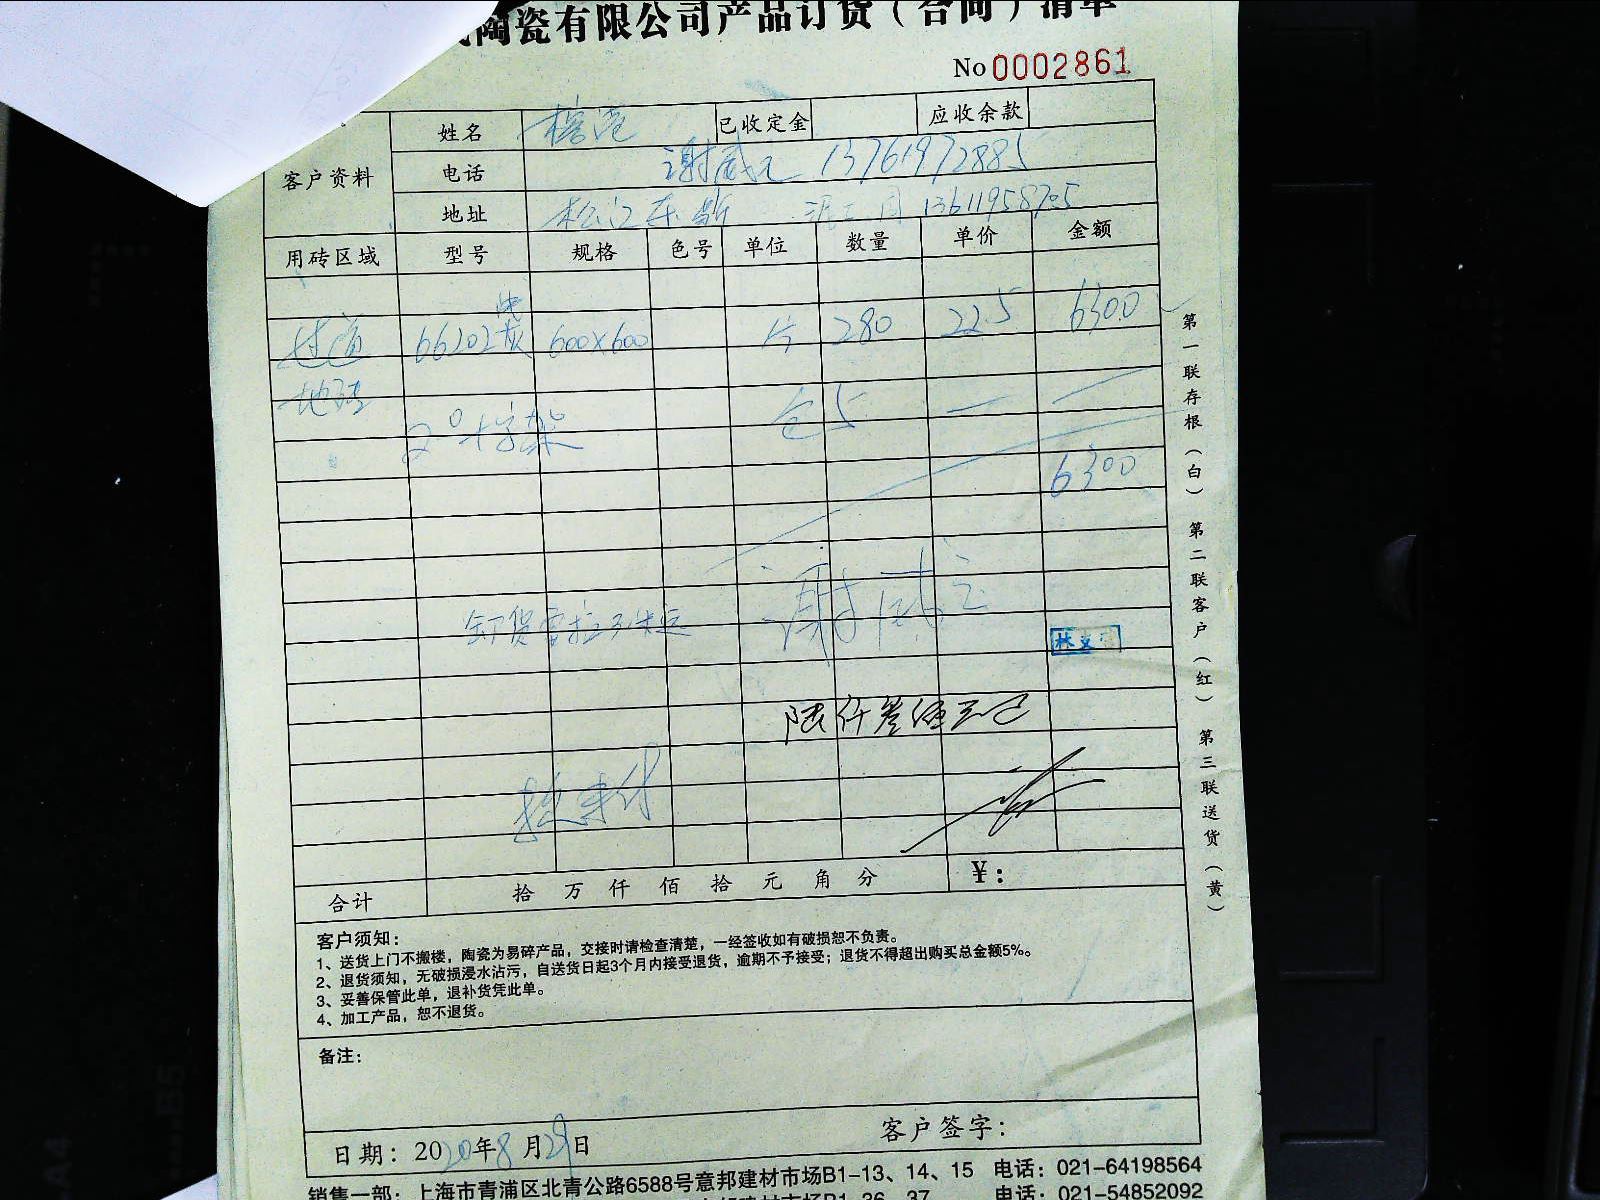 陶瓷有限公司产品订货(合同)清单
No 0002861
客户资料 姓名 已收定金 应收余款
电话 谢威 13761972885
地址 松江东 13611958705
用砖区域 型号 规格 色号 单位 数量 单价 金额
过道 66202 600×600 片 280 22.5 6300
地砖
2°十字架 仓 5
6300
谢威
林
陆仟叁佰元
合计 拾 万 仟 佰 拾 元 角 分 ¥:
客户须知:
1、送货上门不搬楼,陶瓷为易碎产品,交接时请检查清楚,一经签收如有破损恕不负责。
2、退货须知,无破损浸水沾污,自送货日起3个月内接受退货,逾期不予接受;退货不得超出购买总金额5%。
3、妥善保管此单,退补货凭此单。
4、加工产品,恕不退货。
备注:
客户签字:
日期: 2020年8月29日
销售一部: 上海市青浦区北青公路6588号意邦建材市场B1-13、14、15 电话: 021-64198564
电话: 021-54852092
第一联存根(白) 第二联客户(红) 第三联送货(黄)